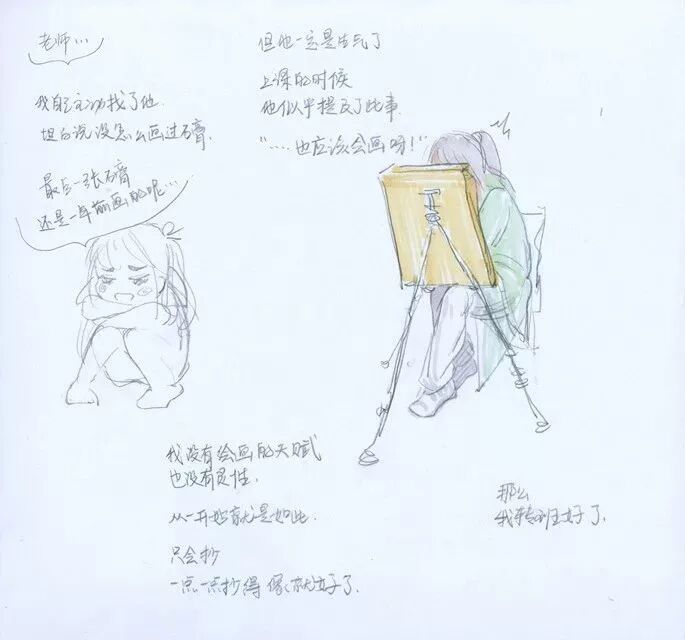 老师…
我自己主动找了他.
坦白说没怎么画过石膏.
最后一张石膏
还是一年前画的呢…
但他一定是生气了
上课的时候
他似乎提及了此事.
“……也应该会画呀!”
我没有绘画的天赋
也没有灵性.
从一开始就是如此.
只会抄
一点一点抄得像就好了.
那么
我转班好了.